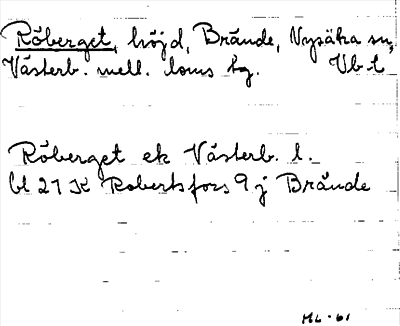 Röberget, höjd, Brände, Nysätra sn,
Västerb. mell. loms hg. Vb. l
Röberget ek Västerb. l.
bl 21 K Robertsfors 9 j Brände
ML - 61